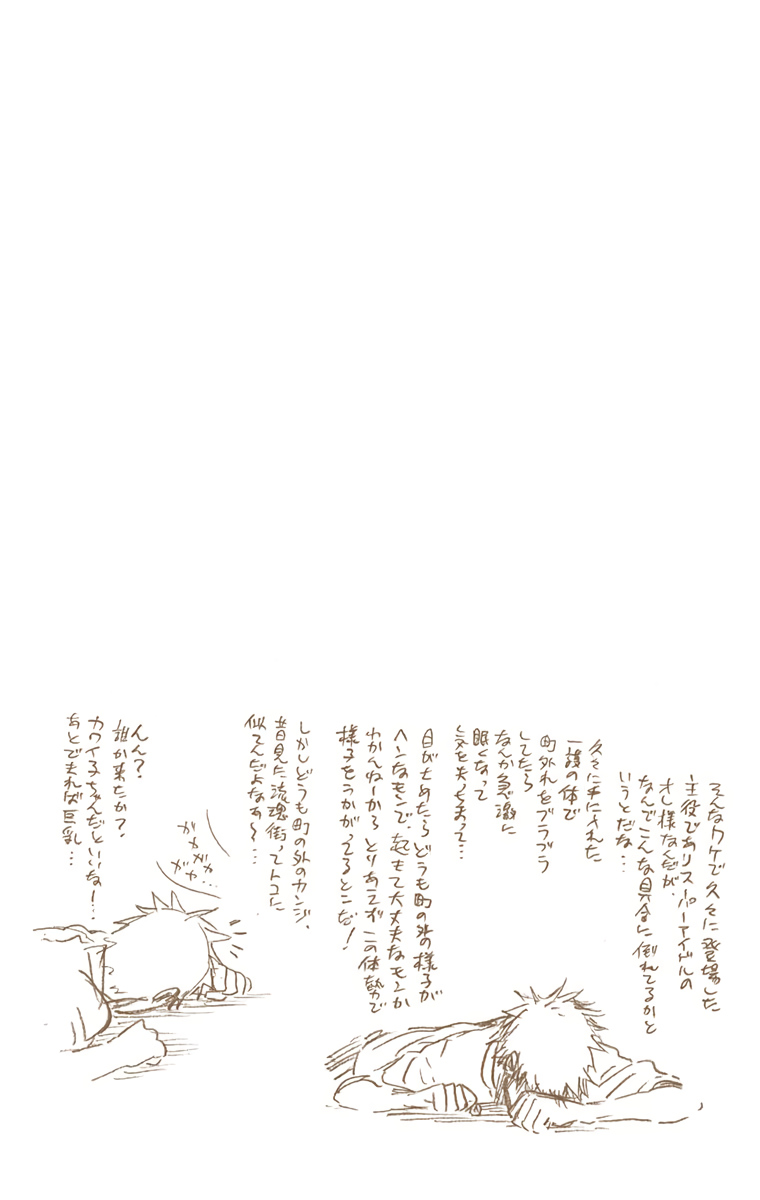 そんなワケで久々に登場した
主役でありスーパーアイドルの
オレ様なんだが、
なんでこんな具合に倒れてるかと
いうとだな…
久々に手にされた
一護の体で
町外れをブラブラ
してたら
なんか急激に
眠くなって
気を失っちまって…
目がさめたらどうも町の外の様子が
ヘンなモンで、起きて大丈夫なモンか
わかんねーから とりあえず この体勢で
様子をうかがってるとこだ！
しかしどうも町の外のカンジ、
昔見た流魂街ってトコに
似てんだよなぁ〜…
ガヤ
ガヤ
ガヤ…
んん？
誰か来たか？
カワイ子ちゃんだといいなー…
あとできれば巨乳…